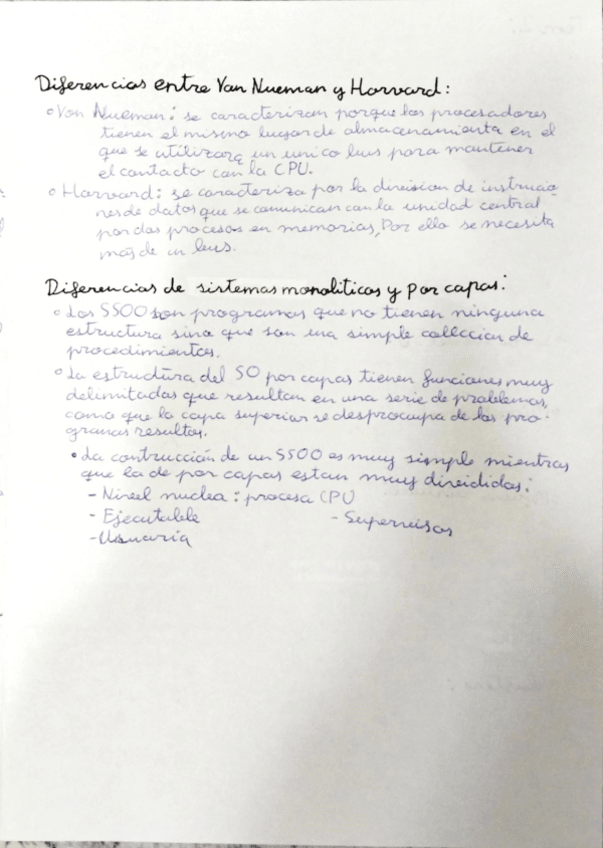 Diferencias entre Van Nueman y Harvard:
Von Nueman: se caracterizan porque los procesadores
tienen el mismo lugar de almacenamiento en el
que se utilizara un unico bus para mantener
el contacto con la CPU.
Harvard: se caracteriza por la division de instruccio
nes de datos que se comunican con la unidad central
por dos procesos en memorias, Por ello se necesita
más de un bus.
Diferencias de sistemas monoliticos y por capas:
Los SSOO son programas que no tienen ninguna
estructura sino que son una simple coleccion de
procedimientos.
La estructura del SO por capas tienen funciones muy
delimitadas que resultan en una serie de problemas,
como que la capa superior se desprocupa de los pro-
gramas resultos.
La contrucción de un SSOO es muy simple mientras
que la de por capas estan muy divididos:
- Nivel nucleo: procesa CPU
- Ejecutable - Supervisor
- Usuario